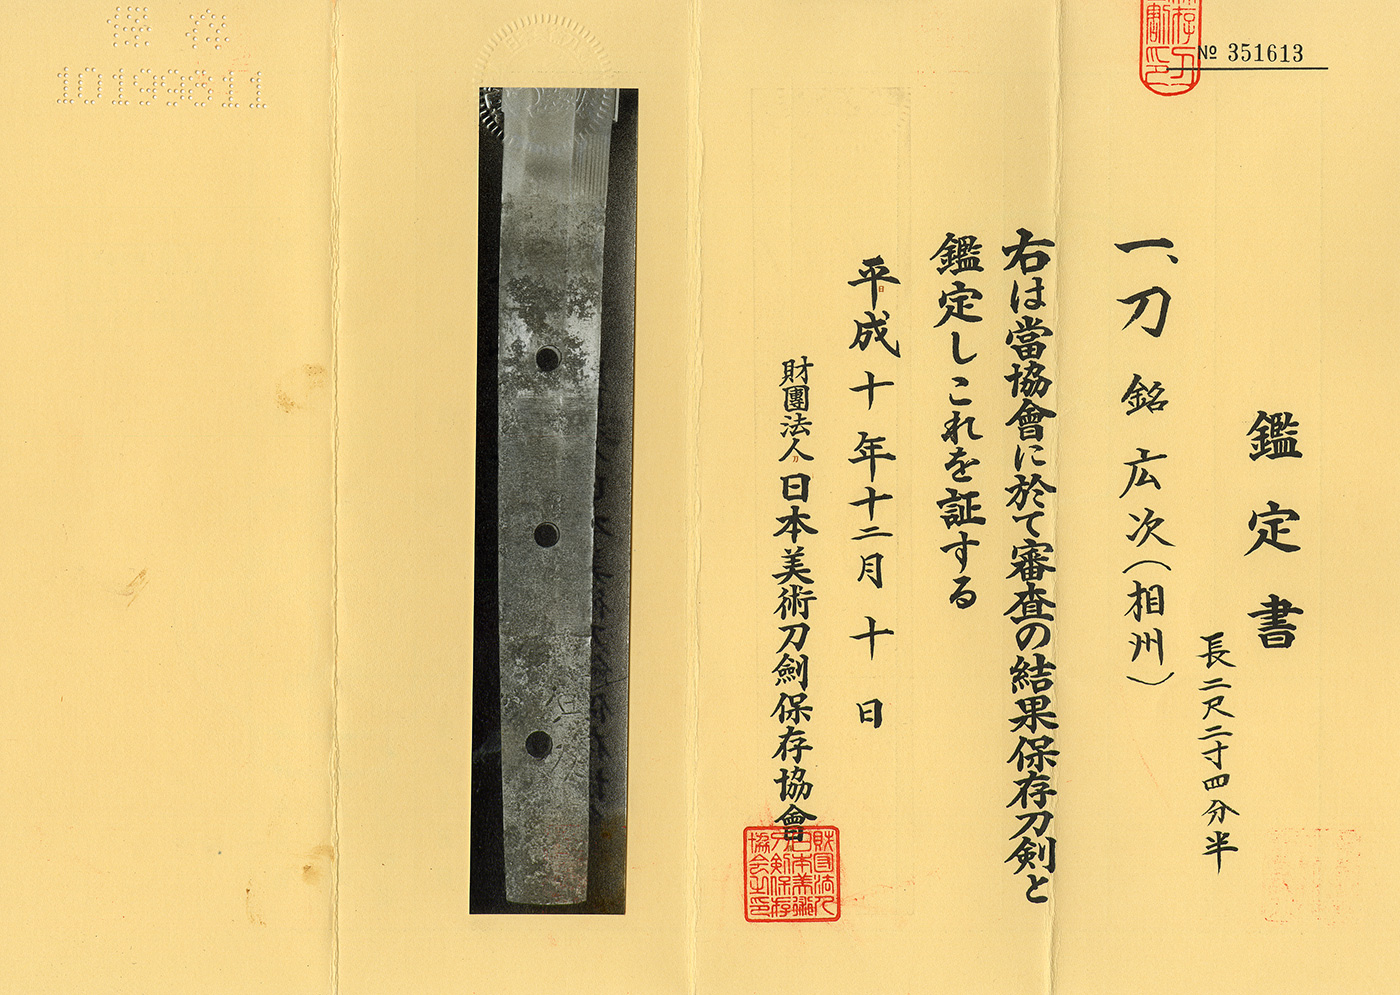 № 351613
鑑定書
長二尺二寸四分半
一、刀 銘 広次(相州)
右は當協會に於て審査の結果保存刀剣と
鑑定しこれを証する
平成十年十二月十日
財團法人 日本美術刀劍保存協會
財団法人
日本美術
刀剣保存
協会之印